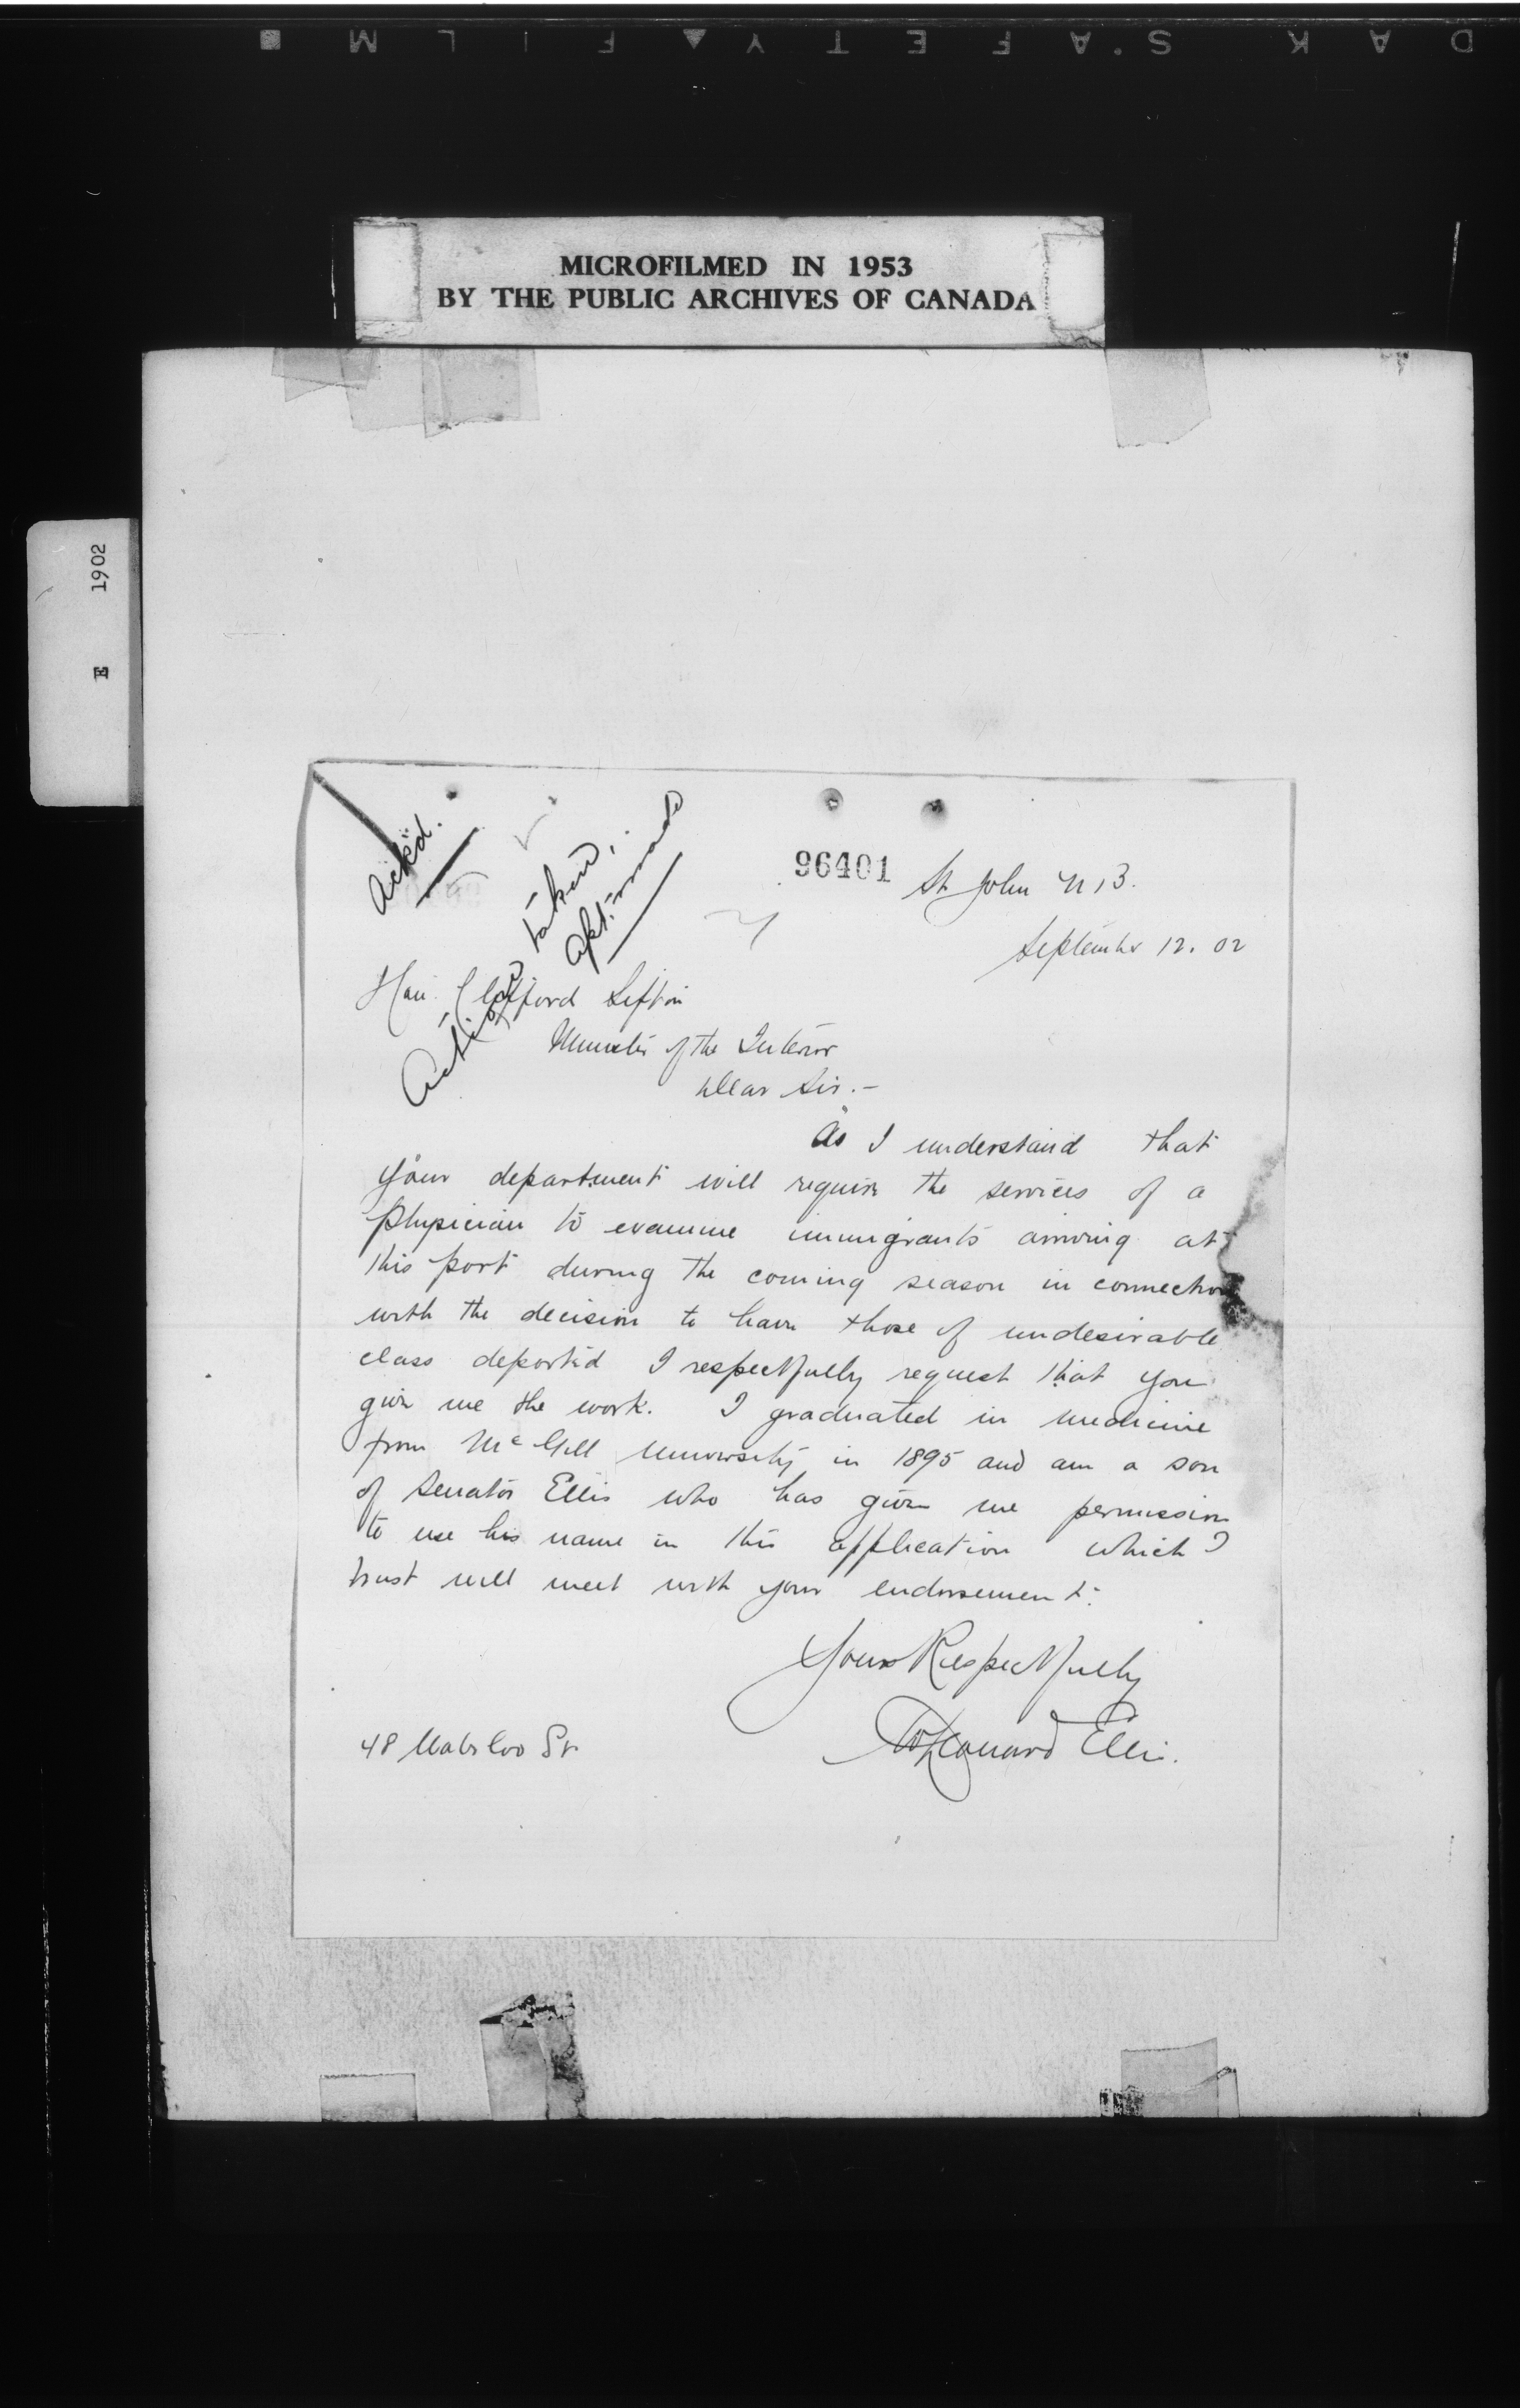 KODAK SAFETY FILM
MICROFILMED IN 1953
BY THE PUBLIC ARCHIVES OF CANADA
E 1902
Ack'd.
Action taken,
apt. made
96401
St John N B.
September 12. 02
Hon. Clifford Sifton
Minister of the Interior
Dear Sir.-
As I understand that
your department will require the services of a
physician to examine immigrants arriving at
this port during the coming season in connection
with the decision to have those of undesirable
class deported I respectfully request that you
give me the work. I graduated in medicine
from McGill University in 1895 and am a son
of Senator Ellis who has given me permission
to use his name in this application which I
trust will meet with your endorsement.
Yours Respectfully
Ellis.
48 Waterloo St